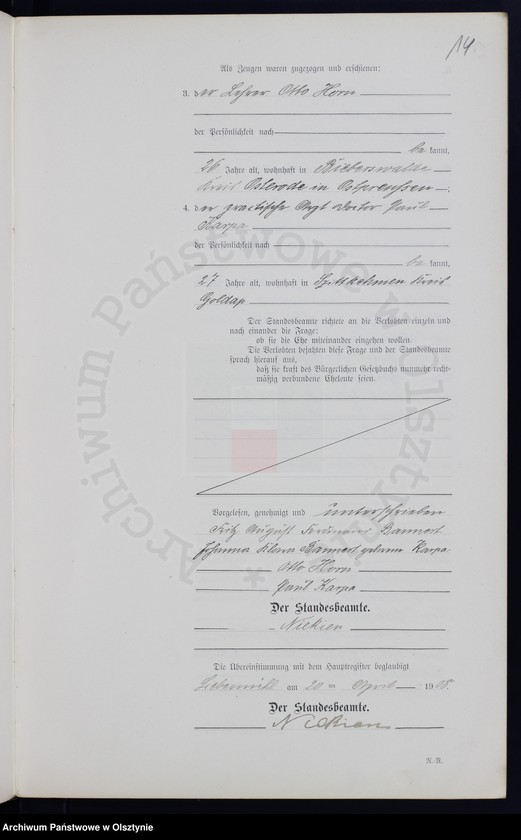 14.
Als Zeugen waren zugezogen und erschienen:
3. der Lehrer Otto Horn
der Persönlichkeit nach
be kannt,
26 Jahre alt, wohnhaft in Bieberswalde
Kreis Osterode in Ostpreussen;
4. der practische Arzt Doctor Paul
Karpa
der Persönlichkeit nach
be kannt,
27 Jahre alt, wohnhaft in Szittkehmen Kreis
Goldap
Der Standesbeamte richtete an die Verlobten einzeln und
nach einander die Frage:
ob sie die Ehe miteinander eingehen wollen.
Die Verlobten bejahten diese Frage und der Standesbeamte
sprach hierauf aus,
daß sie kraft des Bürgerlichen Gesetzbuchs nunmehr recht-
mäßig verbundene Eheleute seien.
Vorgelesen, genehmigt und unterschrieben
Fritz August Ferdinand Bannert
Johanna Klara Bannert geborene Karpa
Otto Horn
Paul Karpa
Der Standesbeamte.
Die Übereinstimmung mit dem Hauptregister beglaubigt
Liebemühl am 20ten April 1908.
Der Standesbeamte.
A.R.
Archiwum Państwowe w Olsztynie
Archiwum Państwowe w Olsztynie